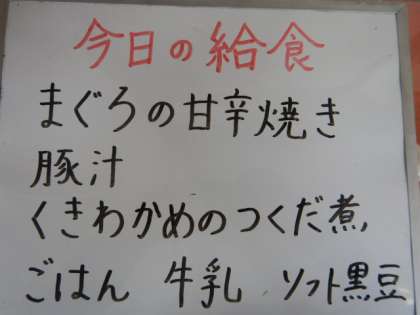 今日の給食
まぐろの甘辛焼き
豚汁
くきわかめのつくだ煮
ごはん 牛乳 ソフト黒豆